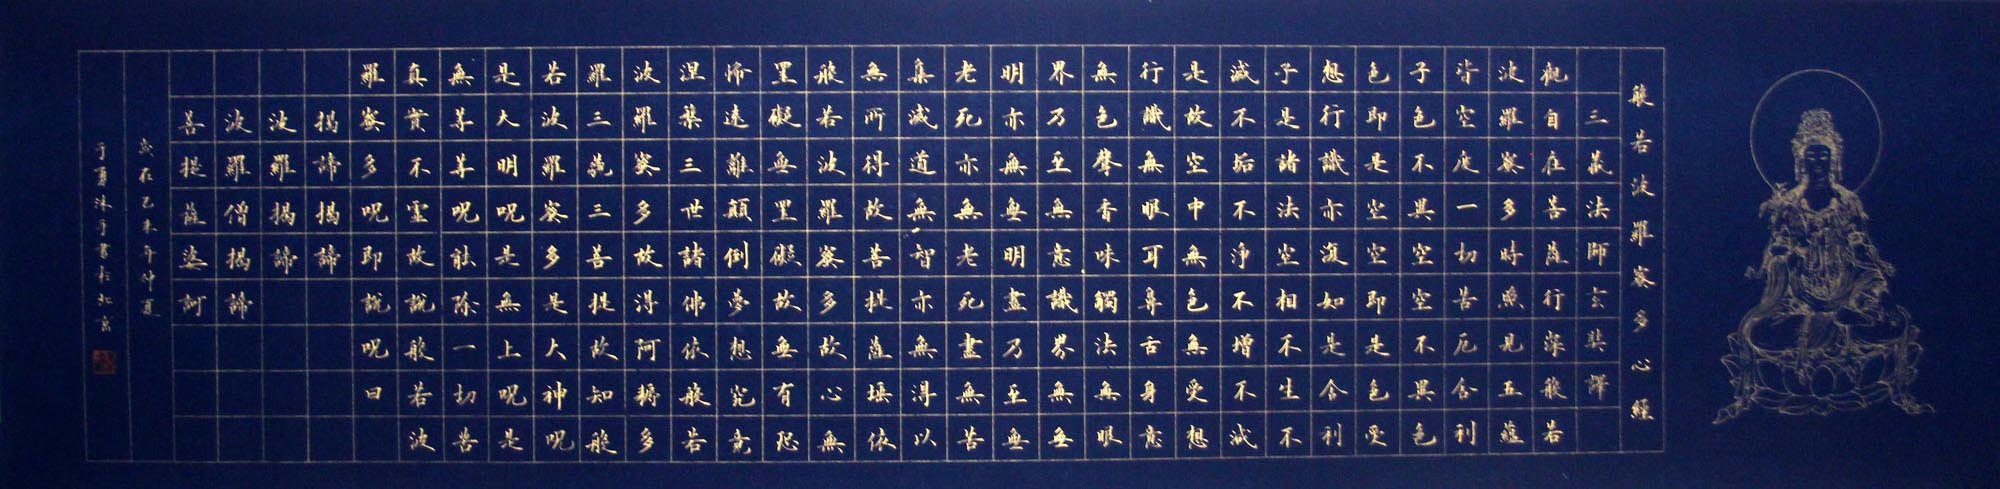 般若波羅蜜多心經
三藏法師玄奘譯
觀自在菩薩行深般若
波羅蜜多時照見五蘊
皆空度一切苦厄舍利
子色不異空空不異色
色即是空空即是色受
想行識亦復如是舍利
子是諸法空相不生不
滅不垢不淨不增不減
是故空中無色無受想
行識無眼耳鼻舌身意
無色聲香味觸法無眼
界乃至無意識界無無
明亦無無明盡乃至無
老死亦無老死盡無苦
集滅道無智亦無得以
無所得故菩提薩埵依
般若波羅蜜多故心無
罣礙無罣礙故無有恐
怖遠離顛倒夢想究竟
涅槃三世諸佛依般若
波羅蜜多故得阿耨多
羅三藐三菩提故知般
若波羅蜜多是大神呪
是大明呪是無上呪是
無等等呪能除一切苦
真實不虛故說般若波
羅蜜多呪即說呪曰
揭諦揭諦
波羅揭諦
波羅僧揭諦
菩提薩婆訶
歲在乙未年仲夏
于勇沐手書於北京